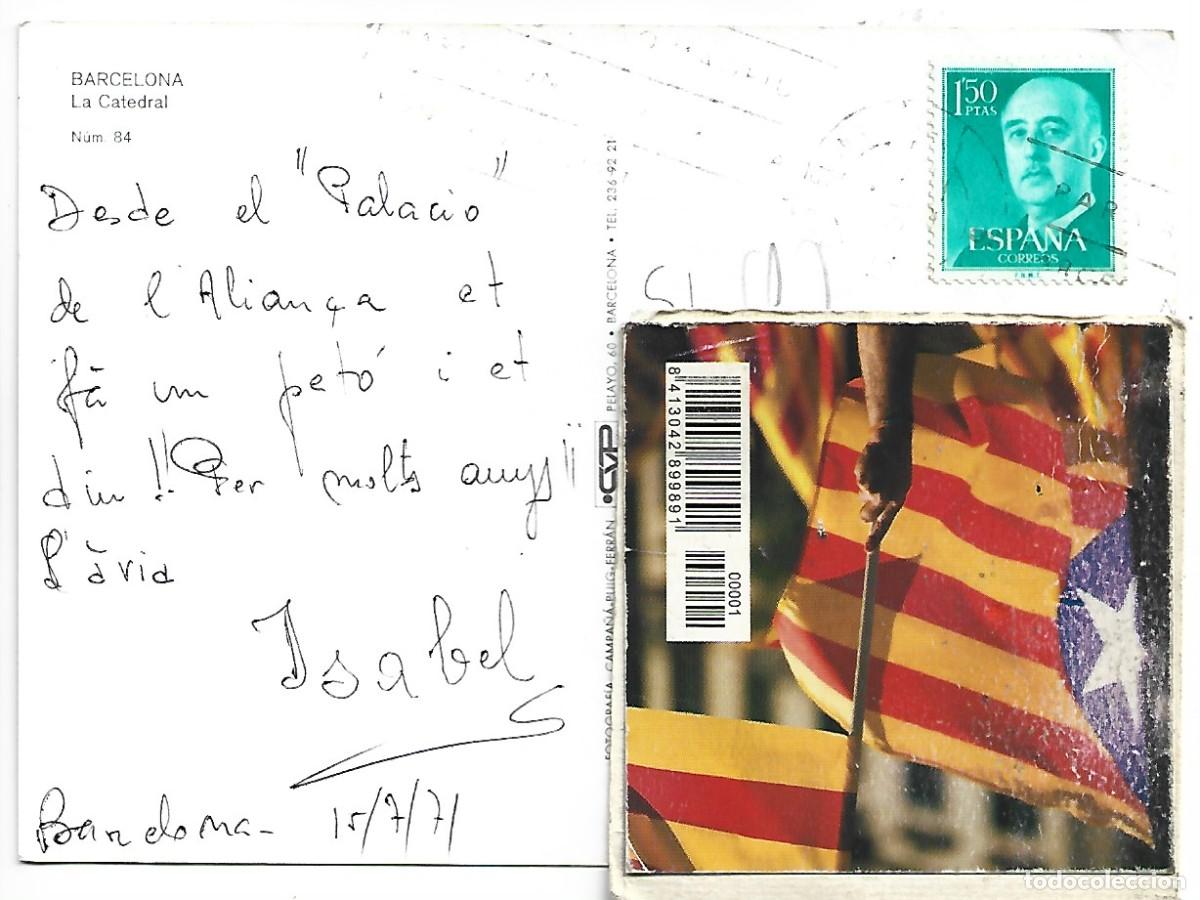 BARCELONA
La Catedral
Núm. 84
Desde el "Palacio"
de l'Aliança et
fà un petó i et
diu!! Per molts anys!!
L'àvia
Isabel
Barcelona - 15/7/71
FOTOGRAFÍA CAMPAÑÁ-PUIG-FERRÁN
.CYP
PELAYO, 60 • BARCELONA • TEL. 236 92 21
1'50
PTAS
ESPAÑA
CORREOS
F.N.M.T.
8 413042 899891
00001
todocoleccion